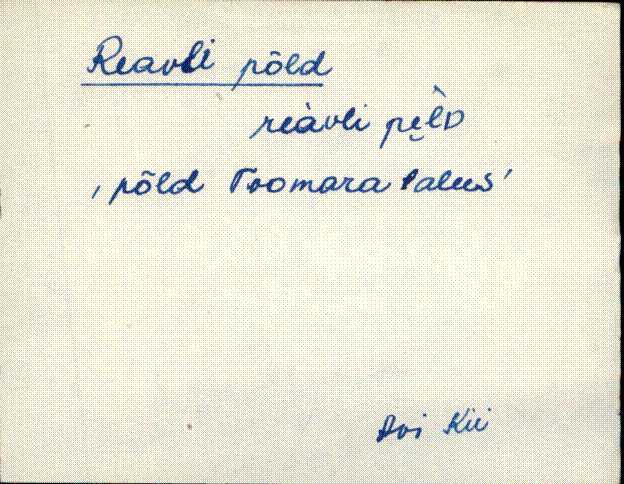 Reavli põld
reàvli pe̮l̀D
, põld Toomara talus'
Avi Kii